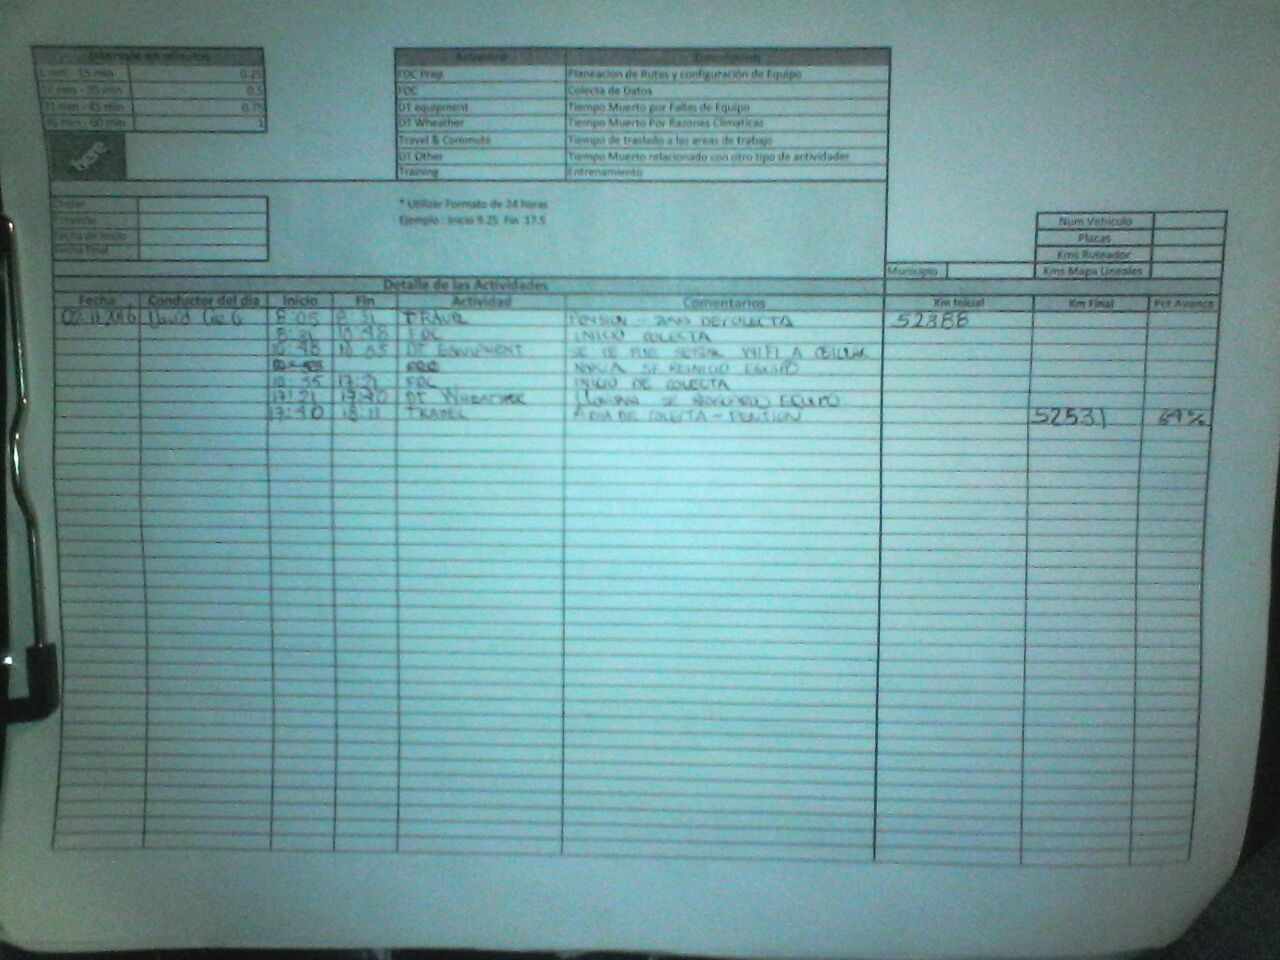 Intervalo en minutos
1 min - 15 min 0.25
16 min - 30 min 0.5
31 min - 45 min 0.75
46 min - 60 min 1
here
Actividad Descripcion
FDC Prep Planeacion de Rutas y configuración de Equipo
FDC Colecta de Datos
DT equipment Tiempo Muerto por Fallas de Equipo
DT Wheather Tiempo Muerto Por Razones Climaticas
Travel & Commute Tiempo de traslado a las areas de trabajo
DT Other Tiempo Muerto relacionado con otro tipo de actividades
Training Entrenamiento
* Utilizar Formato de 24 horas
Ejemplo : Inicio 9.25 Fin 17.5
Proyecto
Fecha de Inicio
Fecha Final
Num Vehiculo
Placas
Kms Ruteador
Municipio Kms Mapa Lineales
Detalle de las Actividades
Fecha Conductor del dia Inicio Fin Actividad Comentarios Km Inicial Km Final Pct Avance
David 8:05 8:21 TRAVEL PENSION - ZONA DE COLECTA 52388
8:21 10:48 FDC INICIO COLECTA
10:48 10:55 DT EQUIPMENT SE LE FUE SEÑAL WIFI A CELULAR
NOKIA SE REINICIO EQUIPO
10:55 17:21 FDC INICIO DE COLECTA
17:21 17:40 DT WHEATHER LLUVIA SE RESGUARDO EQUIPO
17:40 18:11 TRAVEL AREA DE COLECTA - PENTION 52531 64%